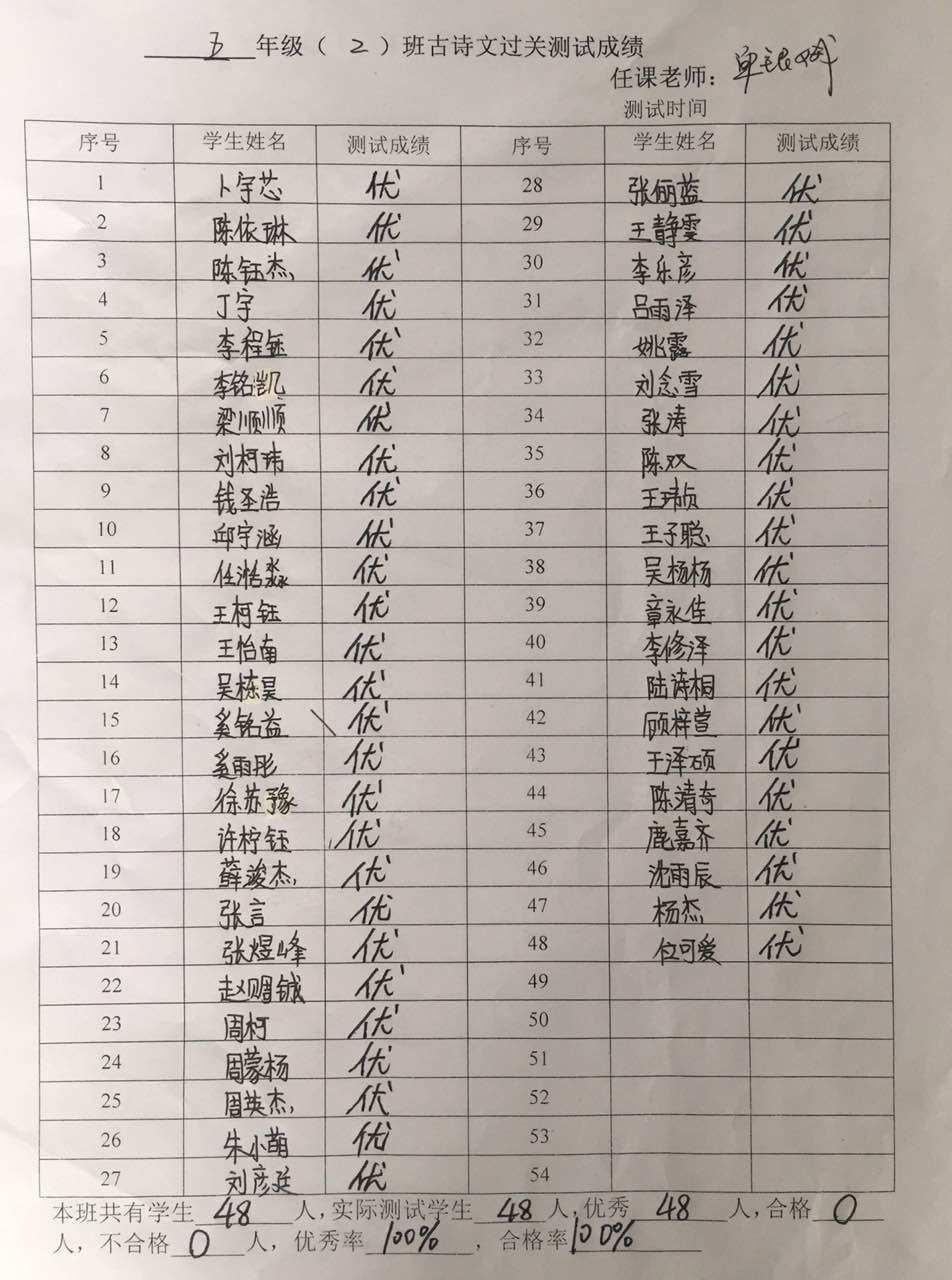 五 年级（ 2 ）班古诗文过关测试成绩
任课老师：
测试时间
序号 学生姓名 测试成绩 序号 学生姓名 测试成绩
1 卜宇芯 优 28 张俪蓝 优
2 陈依琳 优 29 王静雯 优
3 陈钰杰 优 30 李乐彦 优
4 丁宇 优 31 吕雨泽 优
5 李程钰 优 32 姚露 优
6 李铭凯 优 33 刘念雪 优
7 梁顺顺 优 34 张涛 优
8 刘柯玮 优 35 陈双 优
9 钱圣浩 优 36 王玮祯 优
10 邱宇涵 优 37 王子聪 优
11 任淞淼 优 38 吴杨杨 优
12 王柯钰 优 39 章永佳 优
13 王怡南 优 40 李修泽 优
14 吴栋昊 优 41 陆诗桐 优
15 奚铭益 优 42 顾梓萱 优
16 奚雨彤 优 43 王泽硕 优
17 徐苏豫 优 44 陈靖奇 优
18 许柠钰 优 45 鹿嘉齐 优
19 薛浚杰 优 46 沈雨辰 优
20 张言 优 47 杨杰 优
21 张煜峰 优 48 位可爱 优
22 赵赐铖 优 49
23 周柯 优 50
24 周蒙杨 优 51
25 周英杰 优 52
26 朱小萌 优 53
27 刘彦廷 优 54
本班共有学生 48 人，实际测试学生 48 人，优秀 48 人，合格 0
人，不合格 0 人，优秀率 100% ，合格率100%